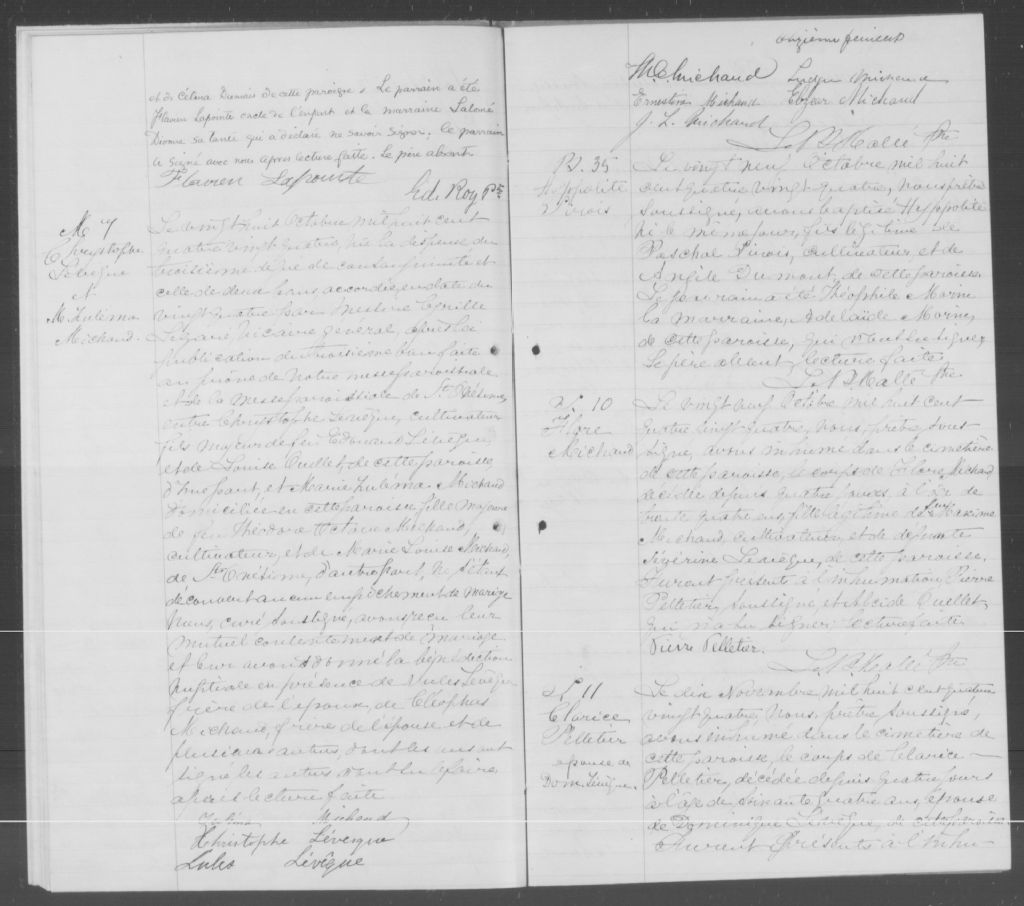 et de Célina Dumais de cette paroisse. Le parrain a été
Flavien Lapointe oncle de l'enfant et la marraine Salomé
Dionne sa tante qui a déclaré ne savoir signer. Le parrain
a signé avec nous après lecture faite. Le père absent.
Flavien Lapointe
Ed. Roy Ptre
M 7
Chrystophe
Levêque
et
M. Zulema
Michaud.
Le vingt huit Octobre mil huit cent
quatre vingt quatre, vu la dispense du
troisième degré de consanguinité et
celle de deux bans, accordée en date du
vingt quatre par Messire Cyrille
Légaré, Vicaire général, aussi la
publication du troisième ban faite
au prône de notre messe paroissiale
et de la messe paroissiale de St Onésime,
entre Christophe Levêque, cultivateur
fils majeur de feu Edouard Levêque,
et de Louise Ouellet de cette paroisse,
d'une part, et Marie Zulema Michaud
domiciliée en cette paroisse, fille majeure
de feu Théodore Octave Michaud,
cultivateur, et de Marie Louise Michaud,
de St Onésime, d'autre part, ne s'étant
découvert aucun empêchement de mariage
Nous, curé soussigné, avons reçu leur
mutuel consentement de mariage
et leur avons donné la bénédiction
nuptiale en présence de Jules Levêque
frère de l'époux, de Cléophas
Michaud, frère de l'épouse et de
plusieurs autres, dont les uns ont
signé les autres n'ont su le faire
après lecture faite.
Michaud
Christophe Lévesque
Jules Lévêque
onzième feuillet
Michaud
Michaud
Ernestine Michaud Elzéar Michaud
J. L. Michaud
Ptre
B. 35
Hippolite
Le vingt neuf Octobre mil huit
cent quatre vingt quatre, nous prêtre
soussigné, avons baptisé Hyppolite
né le même jour, fils légitime de
Paschal cultivateur, et de
Angèle Dumont, de cette paroisse.
Le parrain a été Théophile Morin
la marraine, Adelaïde Morin,
de cette paroisse, qui n'ont su signer
Le père absent, lecture faite
Ptre
S. 10
Flore
Michaud
Le vingt neuf Octobre mil huit cent
quatre vingt quatre, nous, prêtre, sous
signé, avons inhumé dans le cimetière
de cette paroisse, le corps de Flore Michaud
décédée depuis quatre jours à l'âge de
trente quatre ans, fille légitime de feu Maxime
Michaud, cultivateur, et de défunte
Séverine Levêque, de cette paroisse.
Furent présents à l'inhumation, Pierre
Pelletier, soussigné, et Alcide Ouellet,
qui n'a su signer. lecture faite
Pierre Pelletier.
Ptre
S 11
Clarice
Pelletier
épouse de
Dom. Levêque.
Le dix Novembre mil huit cent quatre
vingt quatre, Nous, prêtre soussigné,
avons inhumé dans le cimetière de
cette paroisse, le corps de Clarice
Pelletier, décédée depuis quatre jours
à l'âge de soixante quatre ans, épouse
de Dominique Levêque, de cette paroisse
Furent présents à l'inhu-